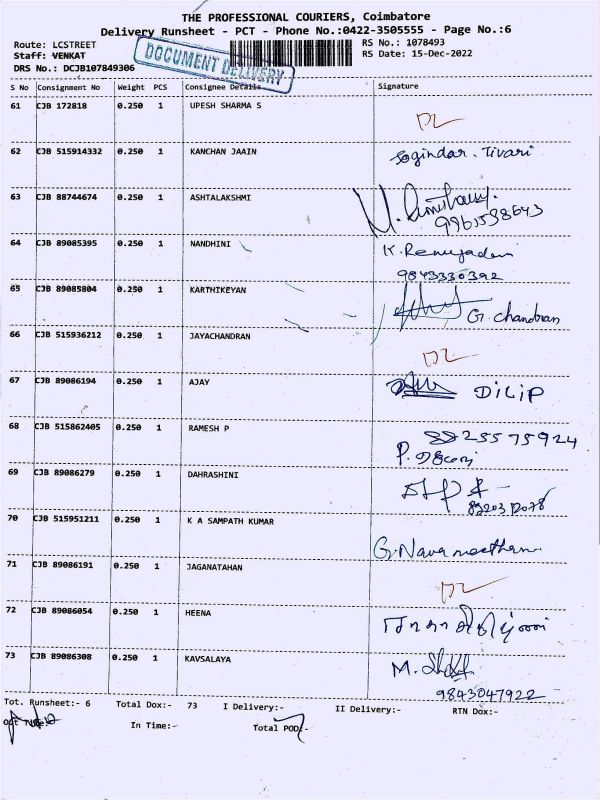 THE PROFESSIONAL COURIERS, Coimbatore
Delivery Runsheet - PCT - Phone No.:0422-3505555 - Page No.:6
Route: LCSTREET RS No.: 1078493
Staff: VENKAT RS Date: 15-Dec-2022
DRS No.: DCJB107849306
DOCUMENT DELIVERY
S No Consignment No Weight PCS Consignee Details Signature
61 CJB 172818 0.250 1 UPESH SHARMA S DL
62 CJB 515914332 0.250 1 KANCHAN JAAIN Jogindar. Tivari
63 CJB 88744674 0.250 1 ASHTALAKSHMI
64 CJB 89085395 0.250 1 NANDHINI
9843330392
65 CJB 89085804 0.250 1 KARTHIKEYAN G. chandran
66 CJB 515936212 0.250 1 JAYACHANDRAN DL
67 CJB 89086194 0.250 1 AJAY DILIP
68 CJB 515862405 0.250 1 RAMESH P
69 CJB 89086279 0.250 1 DAHRASHINI
70 CJB 515951211 0.250 1 K A SAMPATH KUMAR G. Navaneethan
71 CJB 89086191 0.250 1 JAGANATAHAN DL
72 CJB 89086054 0.250 1 HEENA
73 CJB 89086308 0.250 1 KAVSALAYA M.
9843047922
Tot. Runsheet:- 6 Total Dox:- 73 I Delivery:- II Delivery:- RTN Dox:-
In Time:- Total POD:-